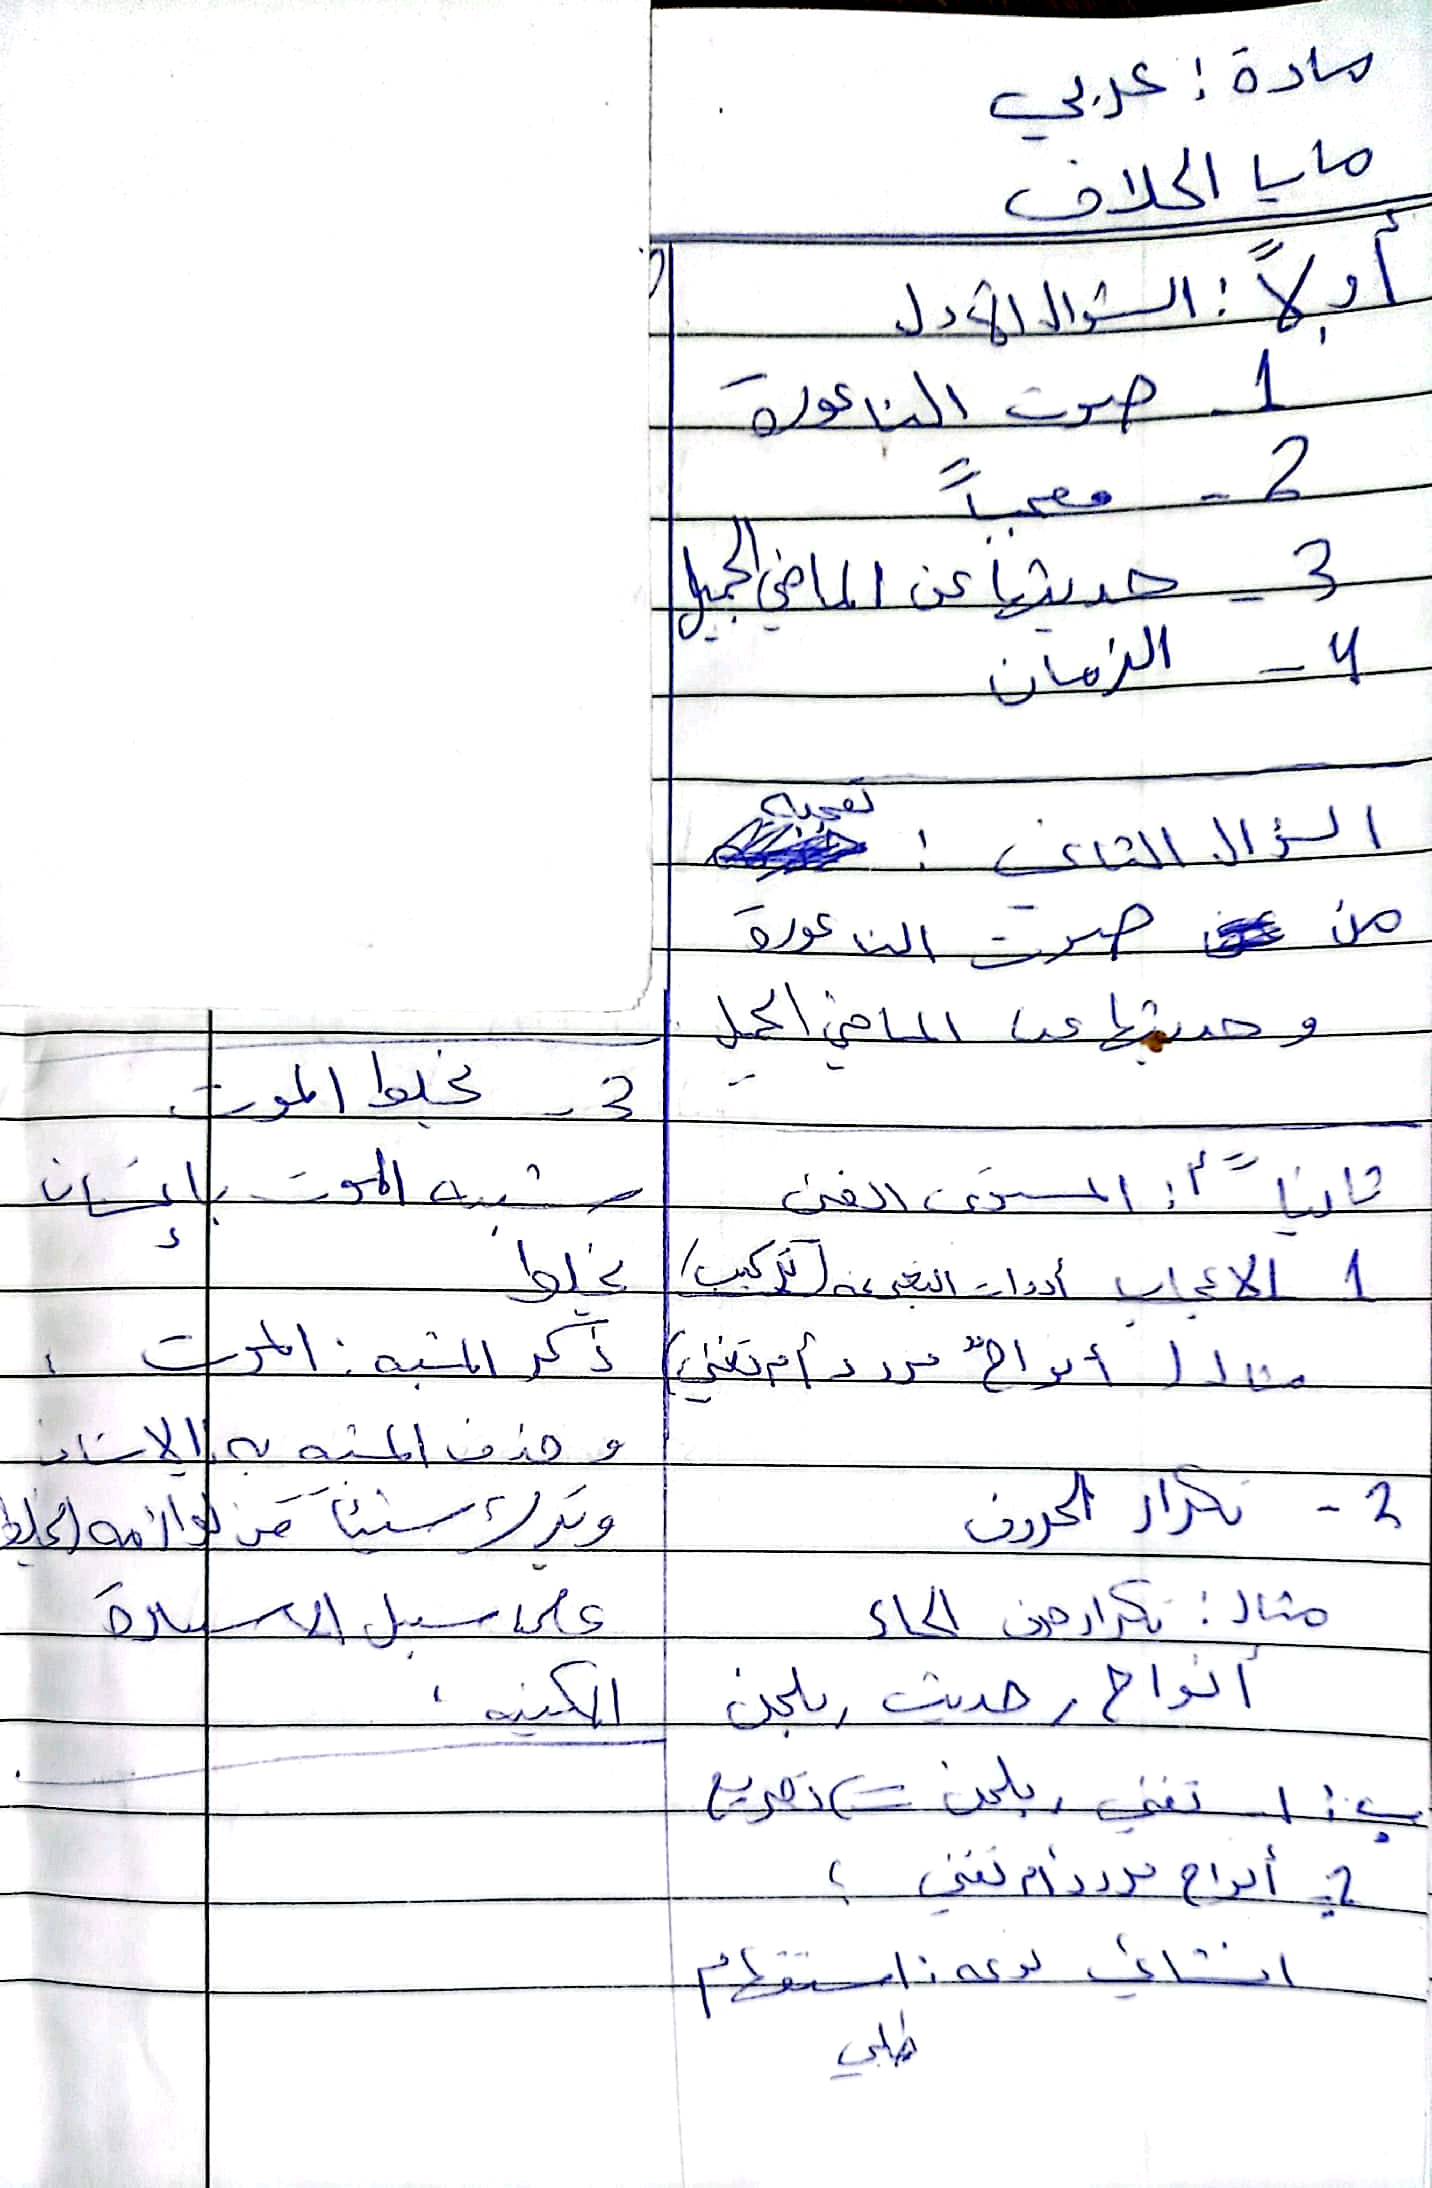 مادة : عربي
مايا الحلاف
أولاً : السؤال الأول
1- صوت الناعورة
2- معجباً
3- حديثها عن الماضي الجميل
4- الزمان
السؤال الثاني : تعجبه
من صوت الناعورة
وحديثها عن الماضي الجميل
ثانياً : المستوى الفني
1 الإعجاب أدوات التعبير عنه (تركيب)
مثال أنواح مردد أم تغني)
2- تكرار الحروف
مثال : تكرار حرف الحاء
أنواح , حديث , بلحن
ب : 1- تغني , بلحن = تصريع
2- أنواح مردد أم تغني ؟
انشائي نوعه : استفهام
طلبي
3- نخيط الموت
شبه الموت بإنسان
نخيط
ذكر المشبه : الموت ،
وحذف المشبه به الإنسان
وترك شيئاً من لوازمه
على سبيل الاستعارة
المكنية .